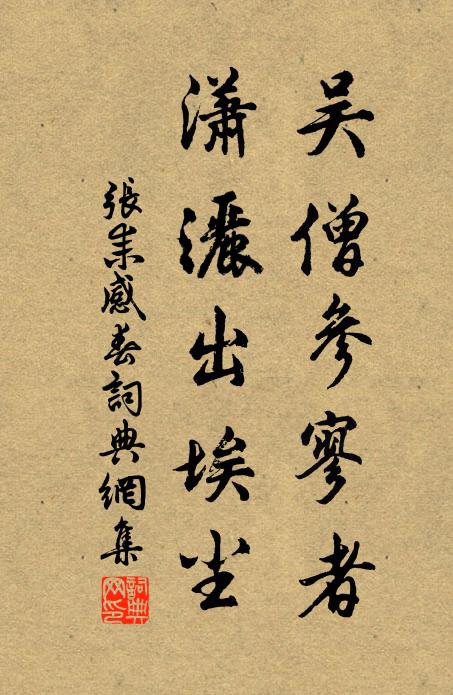 吴僧參寥者
瀟灑出埃尘
張耒感春詞典網集
詞典网印